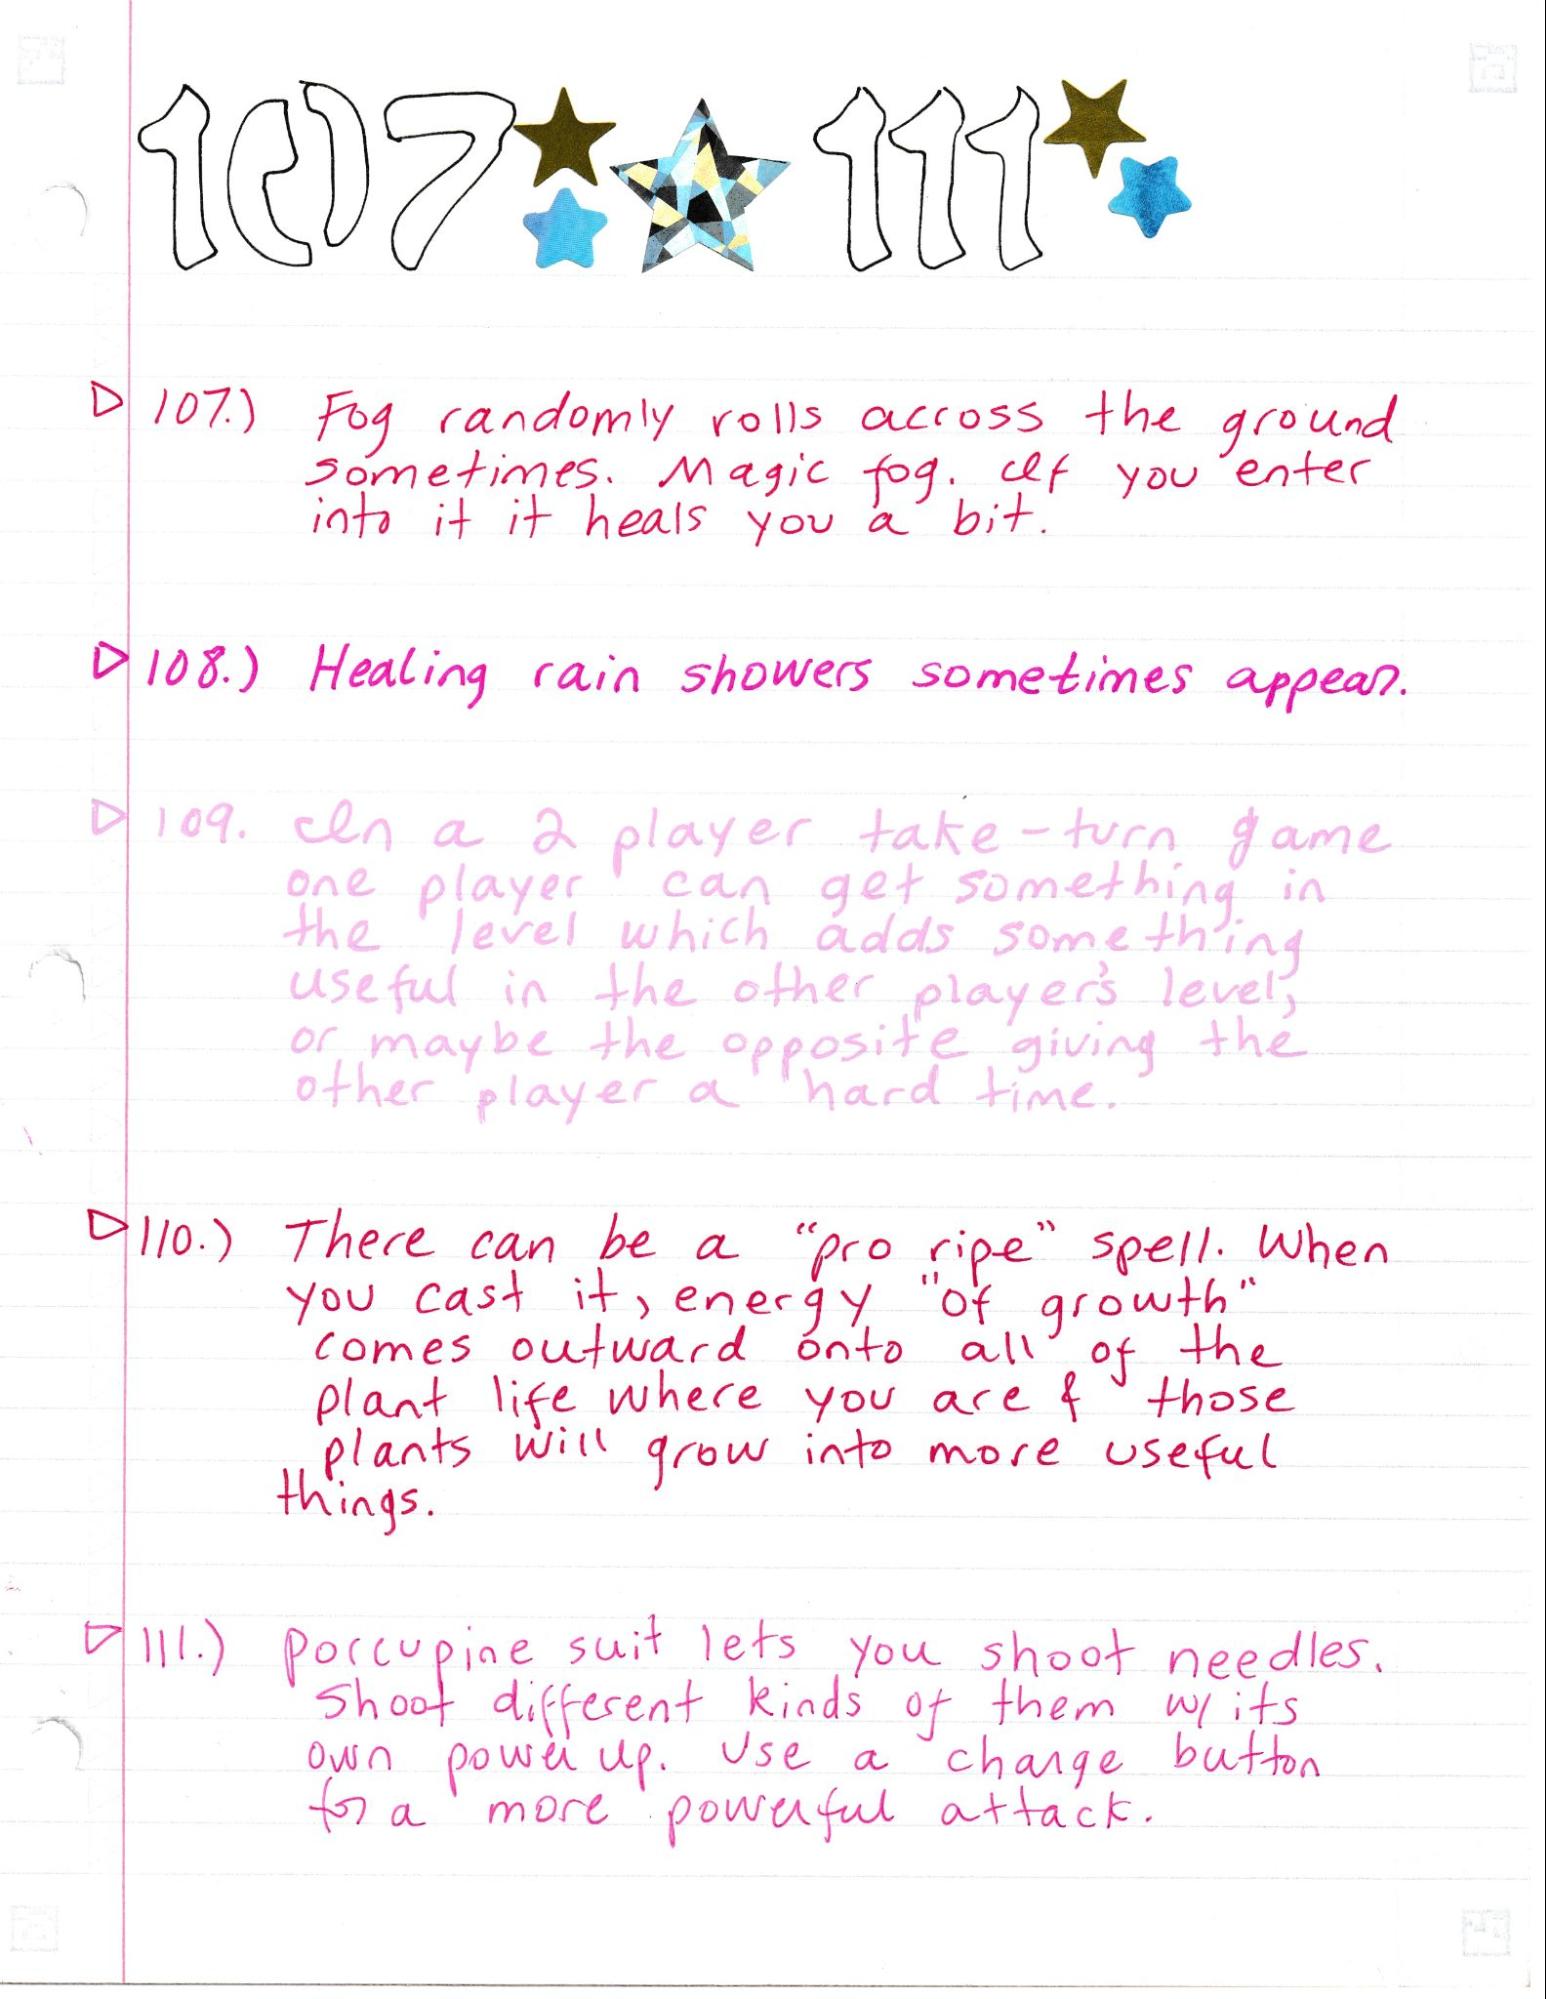 107 111
107.) Fog randomly rolls across the ground
sometimes. Magic fog. If you enter
into it it heals you a bit.
108.) Healing rain showers sometimes appear.
109. In a 2 player take-turn game
one player can get something in
the level which adds something
useful in the other player's level,
or maybe the opposite giving the
other player a hard time.
110.) There can be a "pro ripe" spell. When
you cast it, energy "of growth"
comes outward onto all of the
plant life where you are & those
plants will grow into more useful
things.
111.) Porcupine suit lets you shoot needles.
Shoot different kinds of them w/ its
own power up. Use a charge button
for a more powerful attack.